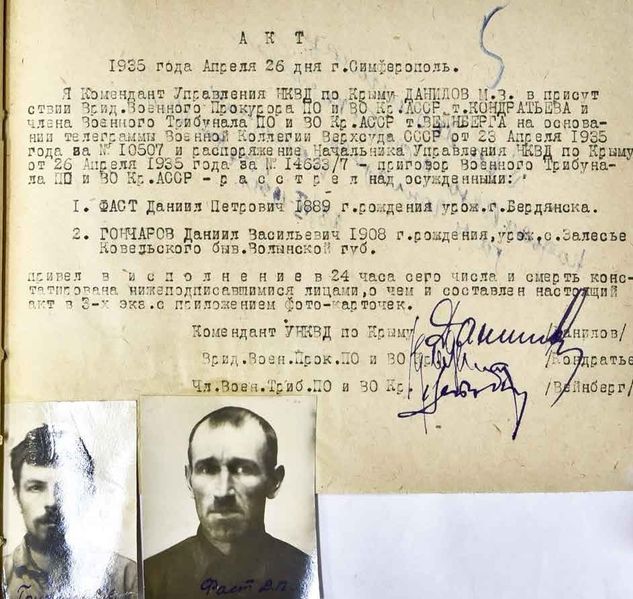 А К Т
1935 года Апреля 26 дня г.Симферополь.
5
Я Комендант Управления НКВД по Крыму ДАНИЛОВ М.В. в присут
ствии Врид.Военного Прокурора ПО и ВО Кр.АССР т.КОНДРАТЬЕВА и
члена Военного Трибунала ПО и ВО Кр.АССР т.ВЕЙНБЕРГА на основа-
нии телеграммы Военной Коллегии Верхсуда СССР от 23 Апреля 1935
года за № 10507 и распоряжение Начальника Управления НКВД по Крыму
от 26 Апреля 1935 года за № 14633/7 - приговор Военного Трибуна-
ла ПО и ВО Кр.АССР - р а с с т р е л над осужденными:
1. ФАСТ Даниил Петрович 1889 г.рождения урож.г.Бердянска.
2. ГОНЧАРОВ Даниил Васильевич 1908 г.рождения,урож.с.Залесье
Ковельского быв.Волынской губ.
привел в и с п о л н е н и е в 24 часа сего числа и смерть конс-
татирована нижеподписавшимися лицами,о чем и составлен настоящий
акт в 3-х экз.с приложением фото-карточек.
Комендант УНКВД по Крыму /Данилов/
Врид.Воен.Прок.ПО и ВО Кр /Кондратье
Чл.Воен.Триб.ПО и ВО Кр. /Вейнберг/
Фаст Д.П.